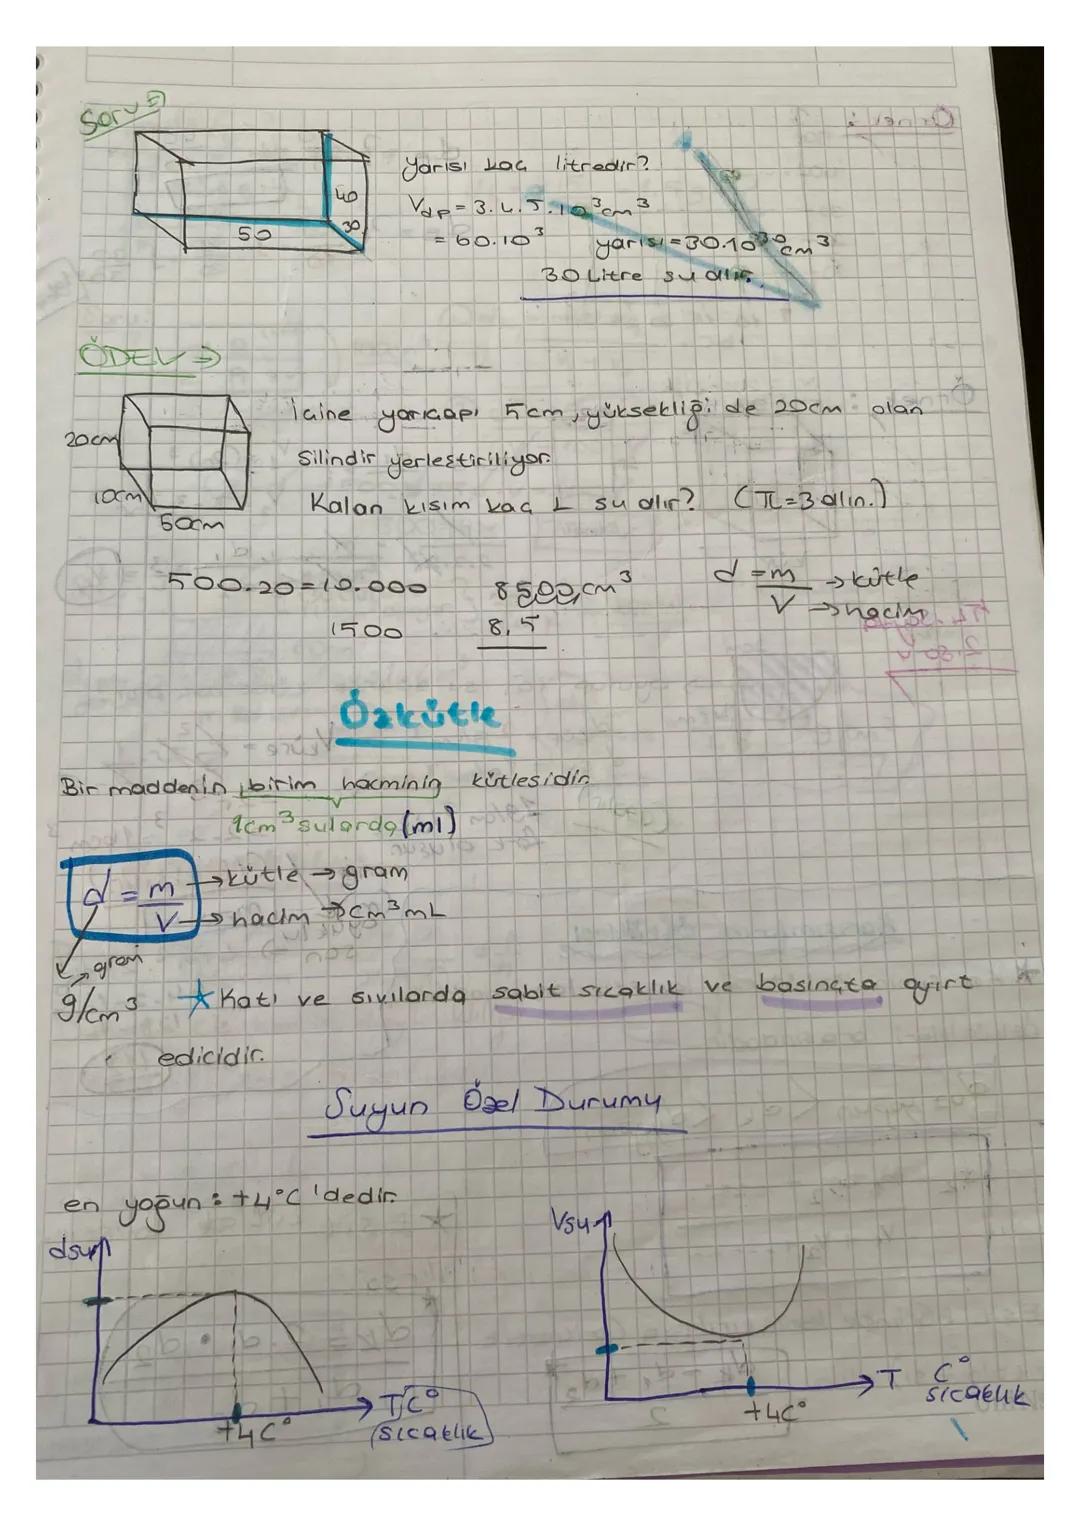 Soru ⇒
Yarısı kaç litredir?
40
30
50
Vdp = 3.4.5.10³cm³
= 60.10³ yarısı = 30.10³ cm³
30 Litre su alır.
ÖDEV ⇒
İçine yarıçapı 5cm, yüksekliği de 20cm olan
20cm
Silindir yerleştiriliyor.
10cm
Kalan kısım kaç L su alır? (π=3 alın.)
50cm
500.20=10.000
8500cm³
d = m/V → kütle → hacim
1500
8,5
Özkütle
Bir maddenin birim hacminin kütlesidir
1cm³ sularda (ml)
d = m/V
→ kütle → gram
→ hacim → cm³ mL
→ gram
g/cm³
★ Katı ve sıvılarda sabit sıcaklık ve basınçta ayırt
edicidir.
Suyun Özel Durumu
en yoğun : +4°C 'dedir.
dsu
Vsu
T C°
(sıcaklık)
+4C°
T C°
sıcaklık
+4C°